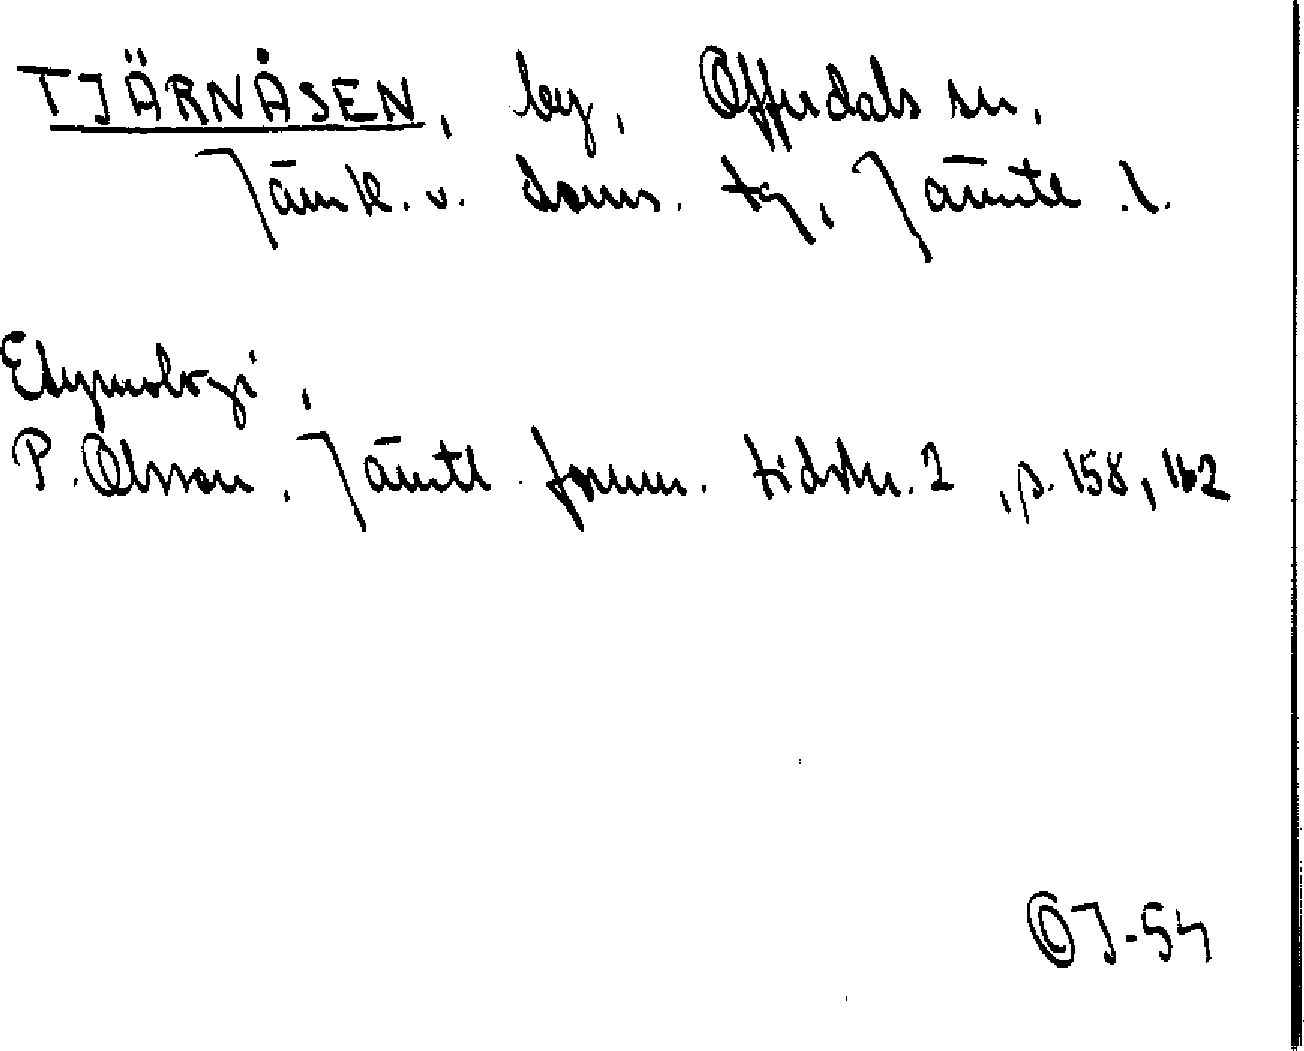 TJÄRNÅSEN, by, Offerdals sn,
Jämtl. v. doms. tg, Jämtl. l.
Etymologi,
P. Olsson, Jämtl. fornm. tidskr. 2, p. 158, 162
OJ-54